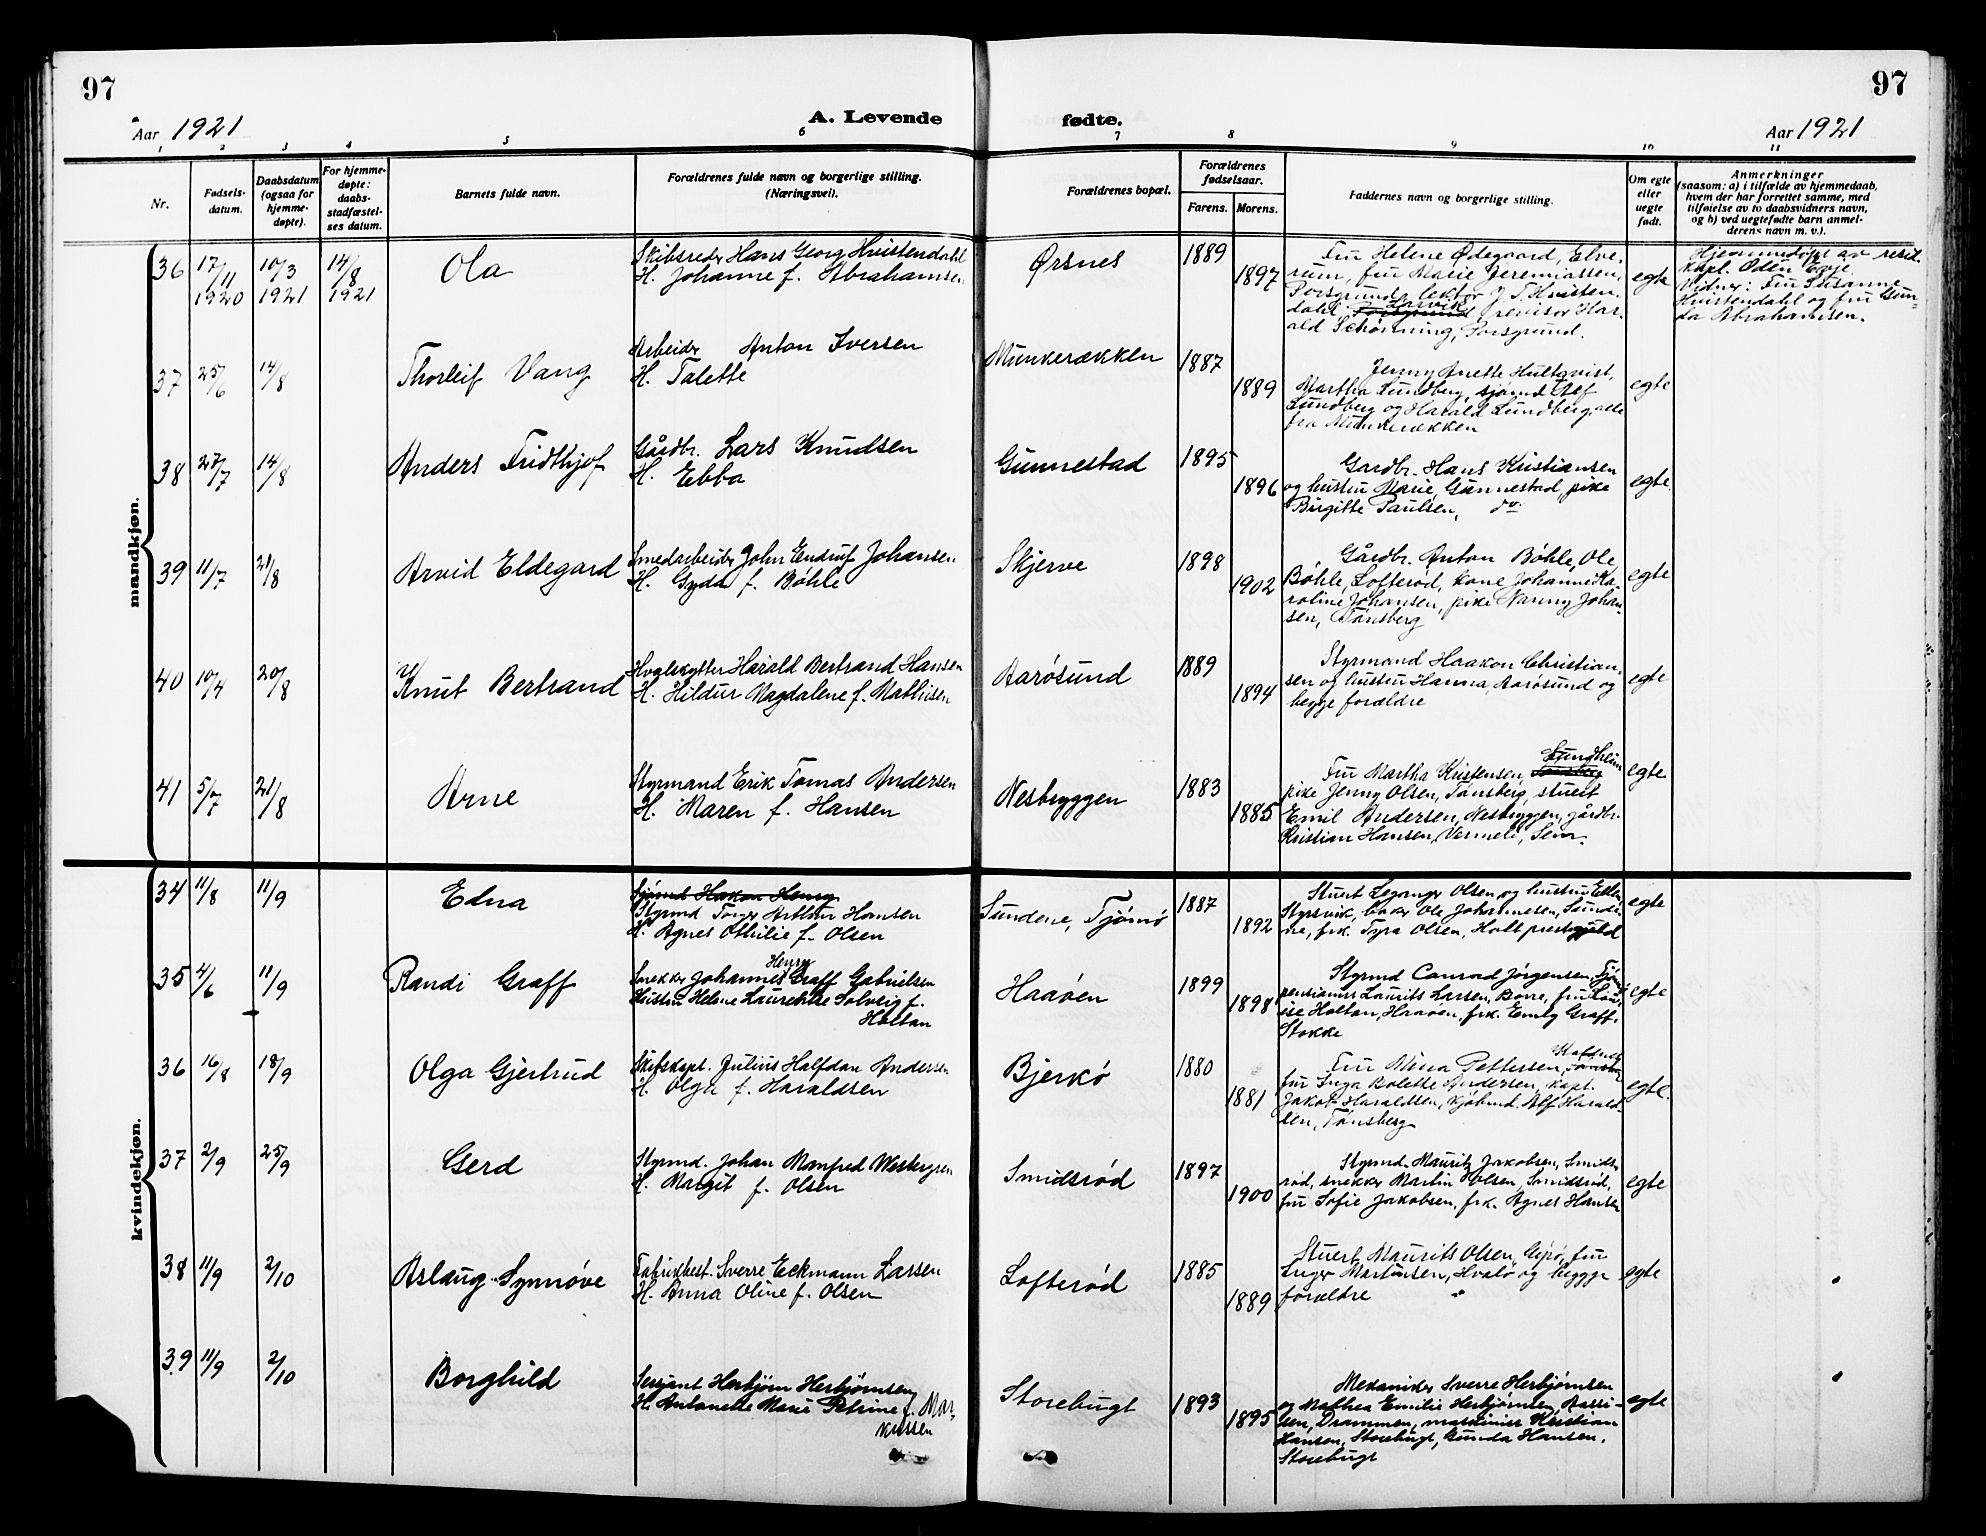 97
97
Aar 1921
A. Levende
fødte.
Aar 1921
1 2 3 4 5 6 7 8 9 10 11
Nr.
Fødsels-
datum.
Daabsdatum
(ogsaa for
hjemme-
døpte).
For hjemme-
døpte:
daabs-
stadfæstel-
ses datum.
Barnets fulde navn.
Forældrenes fulde navn og borgerlige stilling.
(Næringsvei).
Forældrenes bopæl.
Forældrenes
fødselsaar.
Farens. Morens.
Faddernes navn og borgerlige stilling.
Om egte
eller
uegte
født.
Anmerkninger
(saasom: a) i tilfælde av hjemmedaab,
hvem der har forrettet samme, med
tilføielse av to daabsvidners navn,
og b) ved uegtefødte barn anmel-
derens navn m. v.).
mandkjøn.
36 17/11 1920 10/3 1921 14/8 1921
Ola
Skibsreder Hans Georg Hvistendahl
H. Johanne f. Abrahamsen
Ørsnes
1889
1897
Fru Helene Ødegaard, Elve-
rum, fru Marie Jeremiassen,
Porsgrund, lektor J. T. Hvisten-
dahl Larvik Porsgrund, revisor Har-
ald Schønning, Porsgrund.
egte
Hjemmedøpt av resid.
kapl. Oden Evje.
Vidner: Fru Susanne
Hvistendahl og fru Gun-
da Abrahamsen.
37 25/6 14/8
Thorleif Vang
Arbeider Anton Iversen
H. Talette
Munkerækken
1887
1889
Jenny Anette Hultqvist,
Martha Lundberg, sjømd Alf
Lundberg og Harald Lundberg, alle
fra Munkerækken
egte
38 27/7 14/8
Anders Fridthjof
Gårdbr. Lars Knudsen
H. Ebba
Gunnestad
1895
1896
Gardbr. Hans Kristiansen
og hustru Marie, Gunnestad, pike
Birgitte Paulsen, do
egte.
39 11/7 21/8
Arvid Eldegard
Smedarbeider John Endruf Johansen
H. Gyda f. Bøhle
Skjerve
1898
1902
Gårdbr. Anton Bøhle, Ole
Bøhle, Lofterød, kone Johanne Ka-
roline Johansen, pike Nanny Johan-
sen, Tønsberg
egte
40 10/4 20/8
Knut Bertrand
Hvalskytter Harald Bertrand Hansen
H. Hildur Magdalene f. Mathisen
Aarøsund
1889
1894
Styrmand Haakon Christian-
sen og hustru Hanna, Aarøsund og
begge forældre
egte
41 5/7 21/8
Arne
Styrmand Erik Tomas Andersen
H. Maren f. Hansen
Nesbryggen
1883
1885
Fru Martha Kristensen, Sundheim
pike Jenny Olsen, Tønsberg, stuert
Emil Andersen, Nesbryggen, gårdbr.
Kristian Hansen, Vermeli, Sem.
egte
kvindekjøn.
34 11/8 11/9
Edna
Sjømd Hakon Henry
Styrmd Torger Arthur Hansen
H. Agnes Othilie f. Olsen
Sundene, Tjømø
1887
1892
Stuert Leganger Olsen og hustru Ellen
Styrsvik, baker Ole Johannesen, Sunde-
ne, frk. Tyra Olsen, Holt
egte
35 4/6 11/9
Randi Graff
Henry
Snekker Johannes Graff Gabrielsen
Hustru Helene Laurentse Solveig f.
Holtan
Haaøen
1899
1898
Styrmd Conrad Jørgensen, Tjømø
pensionær Laurits Larsen, Borre, fru Lov-
ise Holtan, Haaøen, frk. Emly Graff,
Stokke
egte
36 16/8 18/9
Olga Gjertrud
Skibskapt. Julius Halfdan Andersen
H. Olga f. Haraldsen
Bjerkø
1880
1881
Fru Mina Pettersen,
fru Inga Kolette Andersen, kapt.
Jakob Haraldsen, kjøbmd. Alf Harald-
sen, Tønsberg
egte.
37 2/9 25/9
Gerd
Styrmd. Johan Manfred Westergren
H. Margit f. Olsen
Smidsrød
1897
1900
Styrmd. Mauritz Jakobsen, Smids-
rød, snekker Martin Olsen, Smidsrød,
fru Sofie Jakobsen, frk. Agnes Hansen
egte
38 11/9 2/10
Aslaug Synnøve
Fabrikbest. Sverre Eckmann Larsen
H. Anna Oline f. Olsen
Lofterød
1885
1889
Stuert Maurits Olsen, fru
Inger Martinsen, Hvalø og begge
forældre
egte
39 11/9 2/10
Borghild
Sersjant Herbjørn Herbjørnsen
H. Antonette Marie Petrine f. Mar-
kussen
Storebugt
1893
1895
Mekaniker Sverre Herbjørnsen
og Mathea Emilie Herbjørnsen,
Drammen, maskinist Kristian
Hansen, Storebugt, Gunda Hansen,
Storebugt
egte